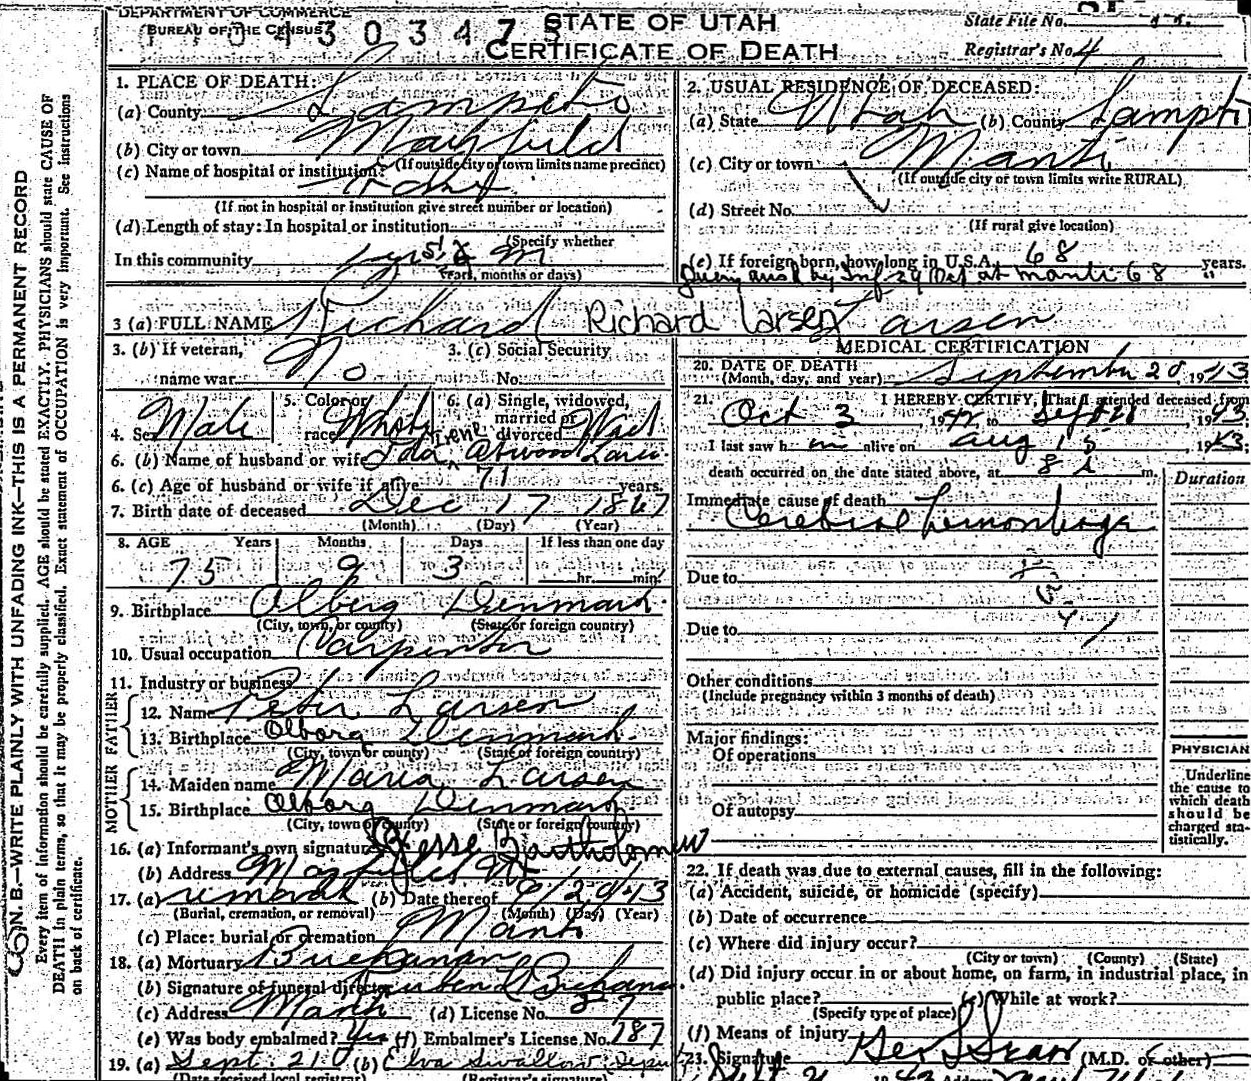 DEPARTMENT OF COMMERCE
BUREAU OF THE CENSUS
STATE OF UTAH
CERTIFICATE OF DEATH
State File No.
Registrar's No. 4
N. B.—WRITE PLAINLY WITH UNFADING INK—THIS IS A PERMANENT RECORD
Every item of information should be carefully supplied. AGE should be stated EXACTLY. PHYSICIANS should state CAUSE OF
DEATH in plain terms, so that it may be properly classified. Exact statement of OCCUPATION is very important. See instructions
on back of certificate.
1. PLACE OF DEATH:
(a) County
(b) City or town Mayfield
(If outside city or town limits name precinct)
(c) Name of hospital or institution:
(If not in hospital or institution give street number or location)
(d) Length of stay: In hospital or institution
(Specify whether
In this community
years, months or days)
2. USUAL RESIDENCE OF DECEASED:
(a) State Utah (b) County
(c) City or town Manti
(If outside city or town limits write RURAL)
(d) Street No.
(If rural give location)
(e) If foreign born, how long in U.S.A. 68 years.
at Manti 68 "
3 (a) FULL NAME Richard Richard Larsen Larsen
3. (b) If veteran,
name war No
3. (c) Social Security
No.
4. Sex Male
5. Color or
race White
6. (a) Single, widowed,
married or
divorced
6. (b) Name of husband or wife Ida Irene Atwood
6. (c) Age of husband or wife if alive 71 years.
7. Birth date of deceased Dec 17 1867
(Month) (Day) (Year)
8. AGE Years Months Days If less than one day
75 9 3 hr. min.
9. Birthplace Alborg Denmark
(City, town, or county) (State or foreign country)
10. Usual occupation Carpenter
11. Industry or business
FATHER
12. Name Peter Larsen
13. Birthplace Alborg Denmark
(City, town or county) (State or foreign country)
MOTHER
14. Maiden name Maria Larsen
15. Birthplace Alborg Denmark
(City, town or county) (State or foreign country)
16. (a) Informant's own signature Jesse Bartholomew
(b) Address Mayfield Ut
17. (a) removal (b) Date thereof 9/20/43
(Burial, cremation, or removal) (Month) (Day) (Year)
(c) Place: burial or cremation Manti
18. (a) Mortuary Buchanan
(b) Signature of funeral director Ruben L Buchanan
(c) Address Manti (d) License No.
(e) Was body embalmed? Yes (f) Embalmer's License No. 187
19. (a) Sept. 21 (b) Elva Swallow
(Date received local registrar) (Registrar's signature)
MEDICAL CERTIFICATION
20. DATE OF DEATH
(Month, day, and year) September 20, 1943
21. I HEREBY CERTIFY, That I attended deceased from
Oct 3, 1942 to Sept 20, 1943
I last saw h im alive on Aug 15, 1943,
death occurred on the date stated above, at m.
Duration
Immediate cause of death
Cerebral hemorrhage
Due to
Due to
Other conditions
(Include pregnancy within 3 months of death)
Major findings:
Of operations
Of autopsy
PHYSICIAN
Underline
the cause to
which death
should be
charged sta-
tistically.
22. If death was due to external causes, fill in the following:
(a) Accident, suicide, or homicide (specify)
(b) Date of occurrence
(c) Where did injury occur?
(City or town) (County) (State)
(d) Did injury occur in or about home, on farm, in industrial place, in
public place? (e) While at work?
(Specify type of place)
(f) Means of injury
23. Signature (M.D. or other)